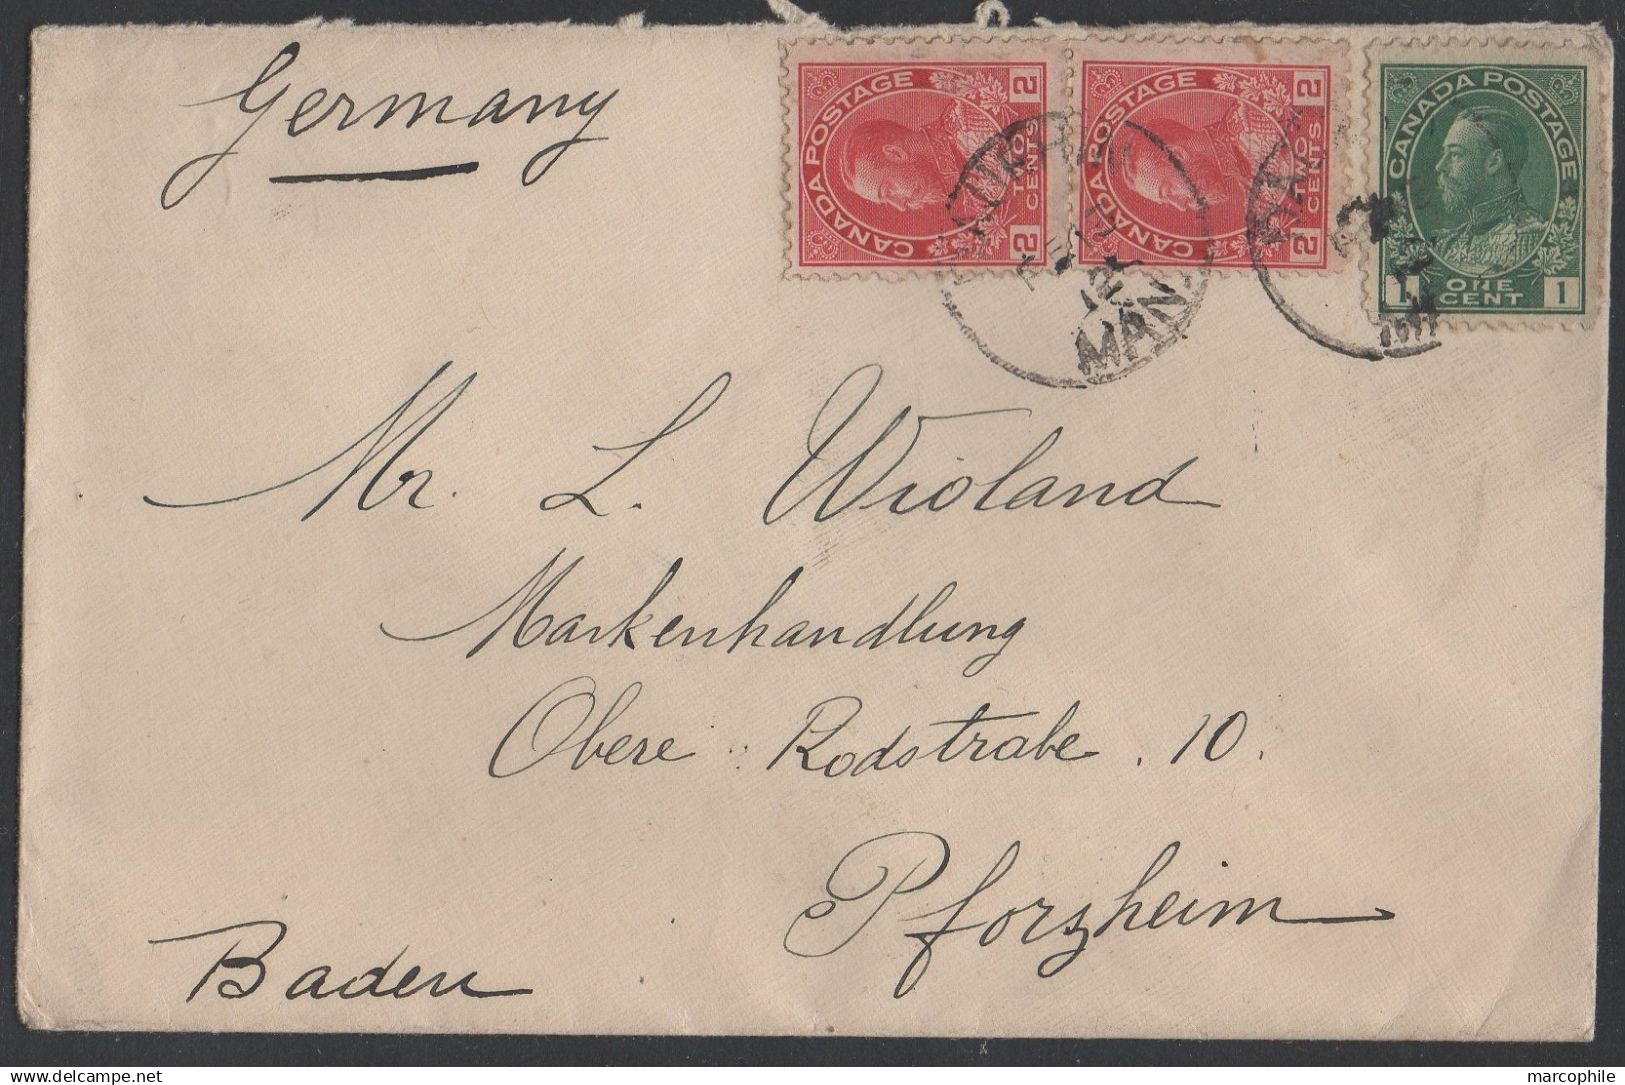 Germany
CANADA POSTAGE
2 TWO CENTS 2
CANADA POSTAGE
2 TWO CENTS 2
CANADA POSTAGE
1 ONE CENT 1
12
MAN.
Mr. L. Wioland
Markenhandlung
Obere Rodstrabe. 10.
Pforzheim
Baden
delcampe.net
marcophile